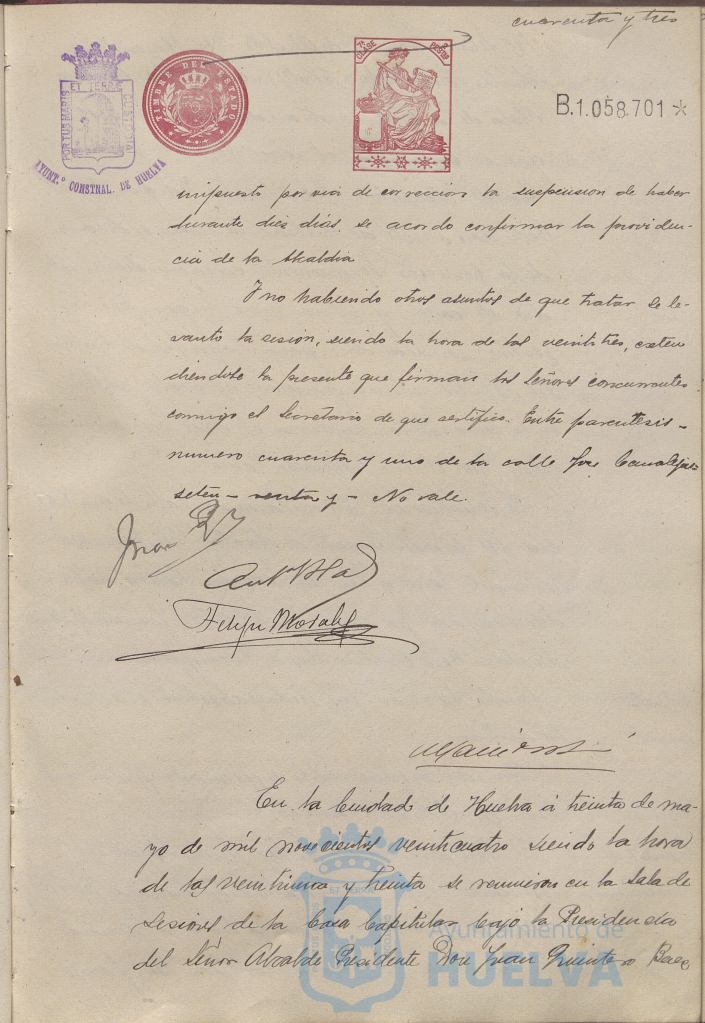 cuarenta y tres
ET TERRÆ
POR TUS MARIS
CUSTODIAL
AYUNT.º CONSTNAL. DE HUELVA
TIMBRE DEL ESTADO
7ª CLASE
PESETAS
B.1.058.701 *
impuesto por via de correccion la suspension de haber
durante diez dias, se acordo confirmar la providen-
cia de la Alcaldia
Y no habiendo otros asuntos de que tratar se le-
vanto la sesion, siendo la hora de las veintitres, exten
diendose la presente que firman los Señores concurrentes
conmigo el Secretario de que certifico. Entre parentesis -
numero cuarenta y uno de la calle Jose Canalejas
seten - y - No vale.
Juan
Felipe Morales
En la Ciudad de Huelva á treinta de ma-
yo de mil novecientos veinticuatro siendo la hora
de las veintiuna y treinta se reunieron en la Sala de
Sesiones de la Casa Capitular bajo la Presidencia
del Señor Alcalde Presidente Don Juan Quintero Baez
Ayuntamiento de
HUELVA